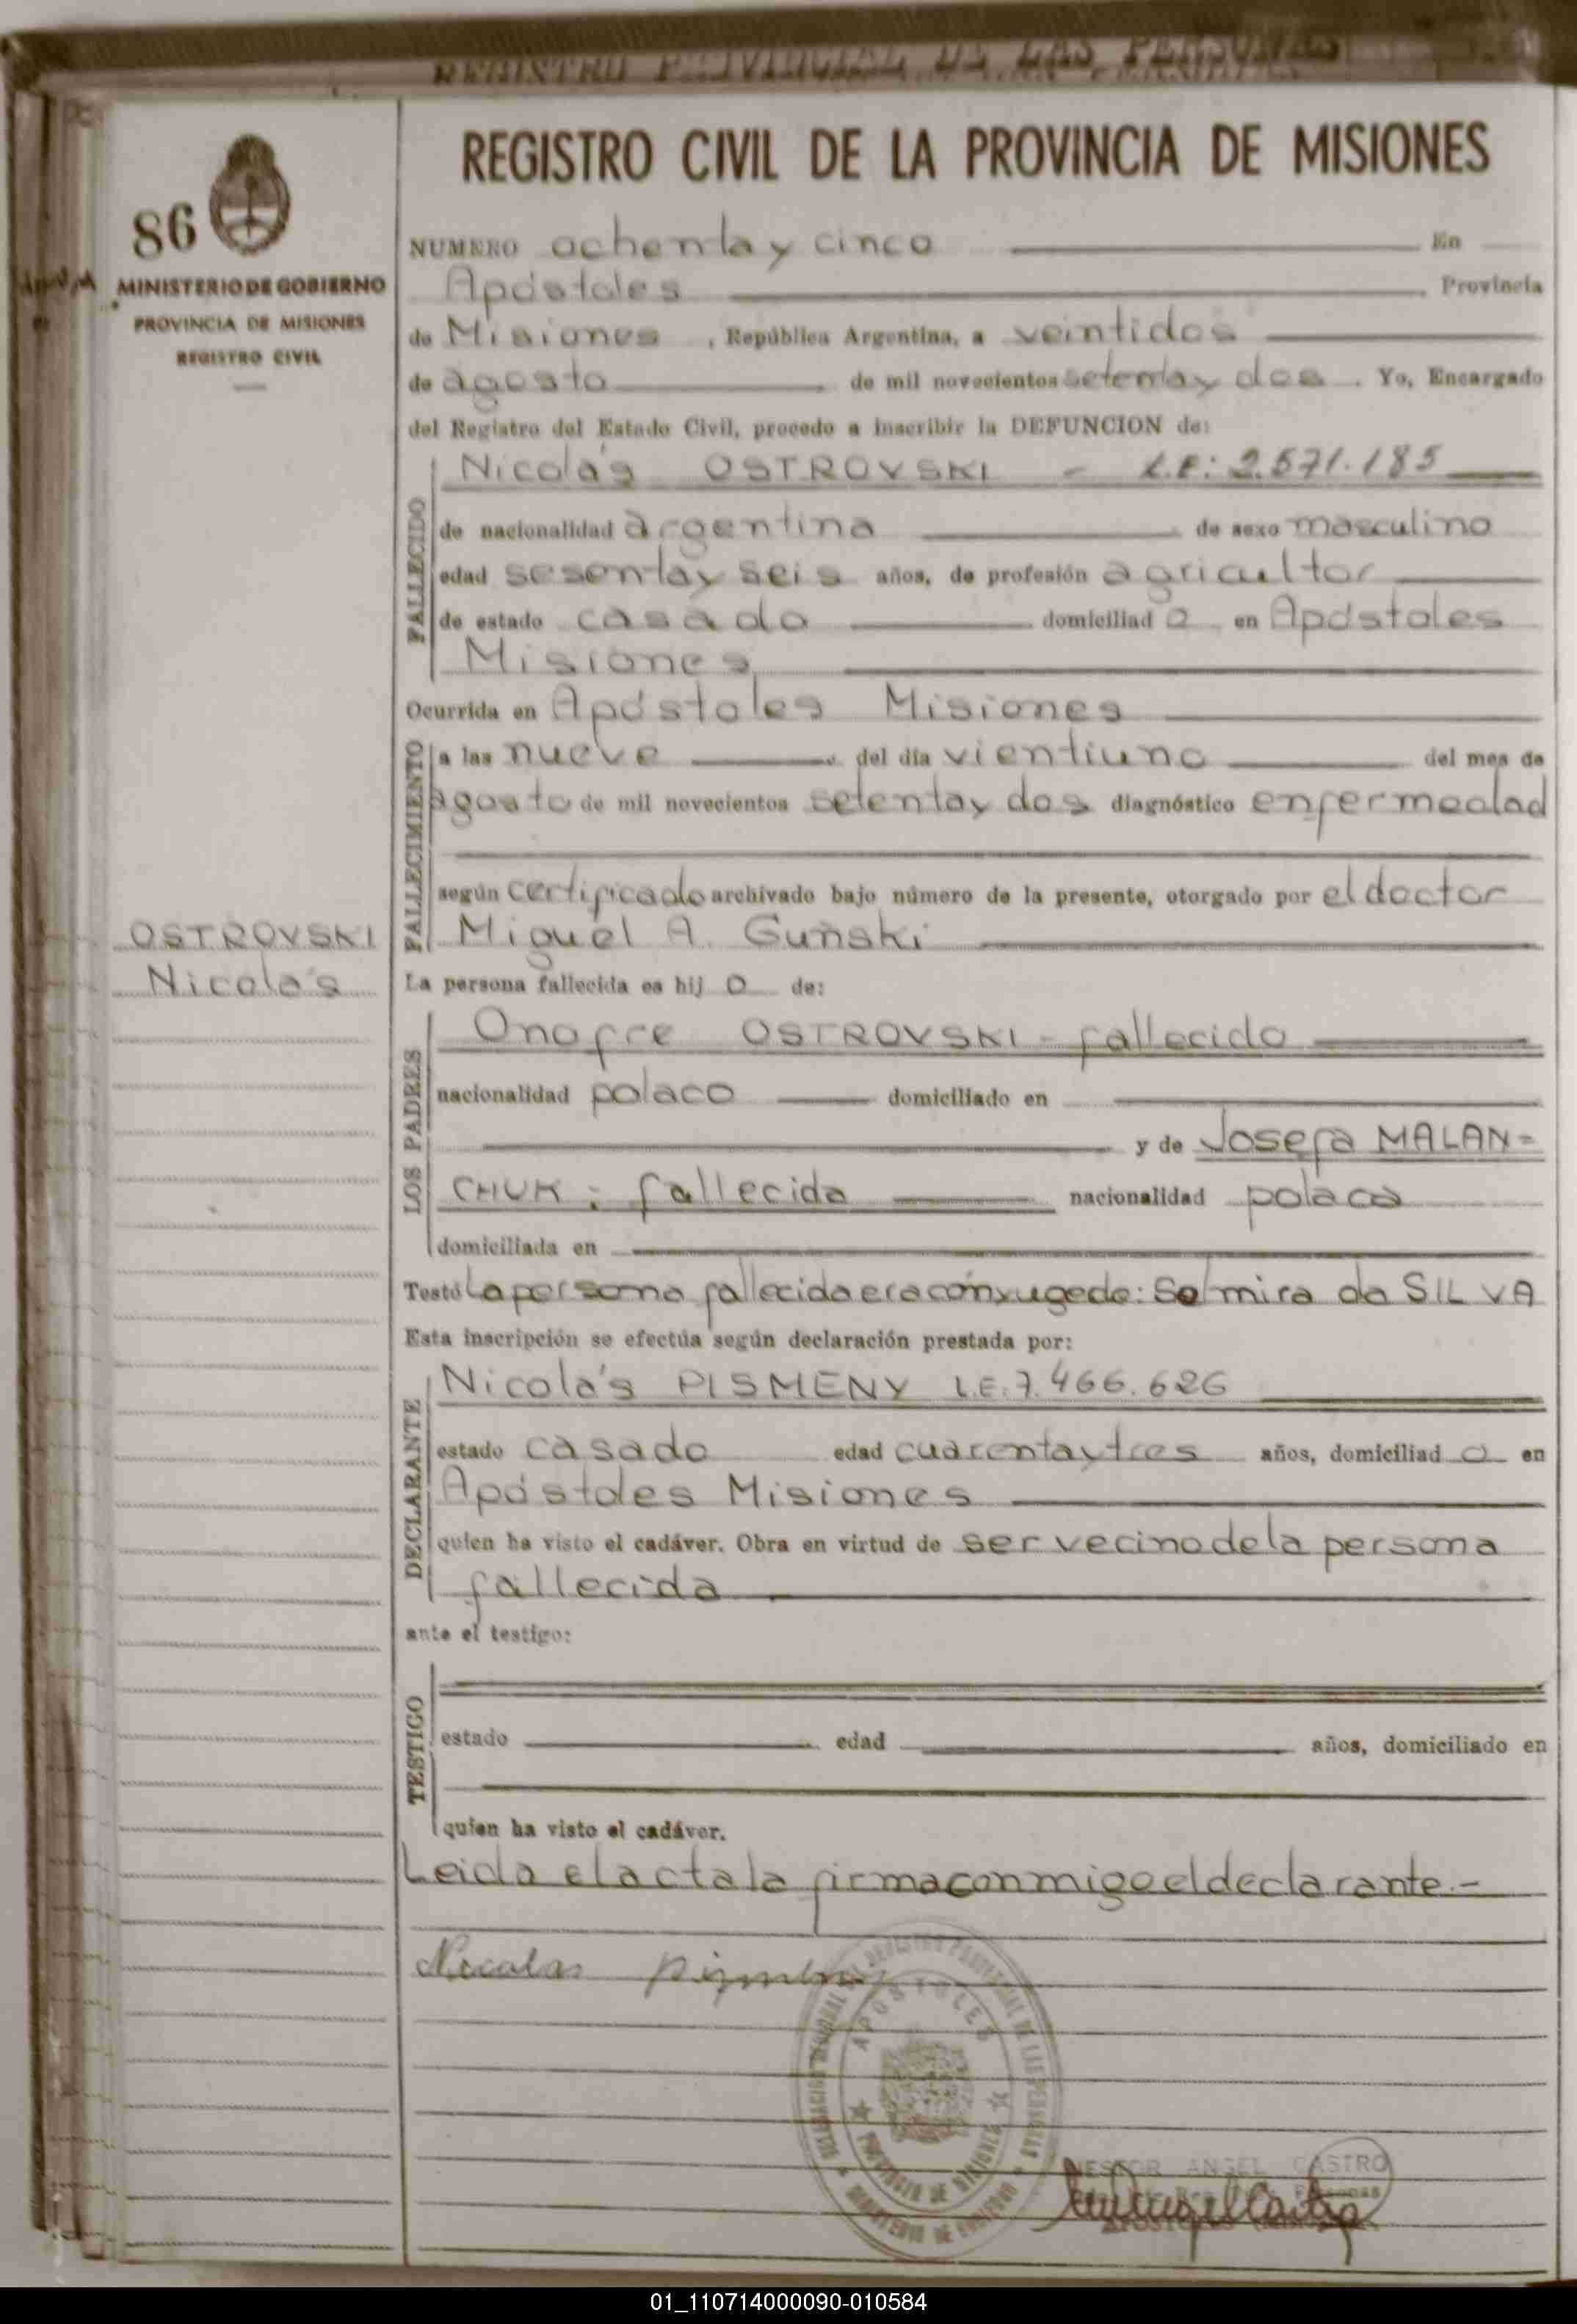 REGISTRO PROVINCIAL DE LAS PERSONAS
REGISTRO CIVIL DE LA PROVINCIA DE MISIONES
86
MINISTERIO DE GOBIERNO
PROVINCIA DE MISIONES
REGISTRO CIVIL
OSTROVSKI
Nicolás
NUMERO ochenta y cinco En
Apóstoles Provincia
de Misiones, República Argentina, a veintidos
de agosto de mil novecientos setenta y dos. Yo, Encargado
del Registro del Estado Civil, procedo a inscribir la DEFUNCION de:
FALLECIDO
Nicolás OSTROVSKI - L.E: 2.571.185
de nacionalidad argentina de sexo masculino
edad sesenta y seis años, de profesión agricultor
de estado casado domiciliad o en Apóstoles
Misiones
Ocurrida en Apóstoles Misiones
FALLECIMIENTO
a las nueve del día vientiuno del mes de
agosto de mil novecientos setenta y dos diagnóstico enfermedad
según certificado archivado bajo número de la presente, otorgado por el doctor
Miguel A. Guñski
La persona fallecida es hij o de:
LOS PADRES
Onofre OSTROVSKI - fallecido
nacionalidad polaco domiciliado en
y de Josefa MALAN=
CHUK : fallecida nacionalidad polaca
domiciliada en
Testó La persona fallecida era cónyuge de: Selmira da SILVA
Esta inscripción se efectúa según declaración prestada por:
DECLARANTE
Nicolás PISMENY L.E: 7.466.626
estado casado edad cuarenta y tres años, domiciliad o en
Apóstoles Misiones
quien ha visto el cadáver. Obra en virtud de ser vecino de la persona
fallecida
ante el testigo:
TESTIGO
estado edad años, domiciliado en
quien ha visto el cadáver.
Leida el acta la firma conmigo el declarante.-
Nicolas Pismeny
APOSTOLES
PROVINCIA DE MISIONES
MINISTERIO DE GOBIERNO
NESTOR ANGEL CASTRO
01_110714000090-010584